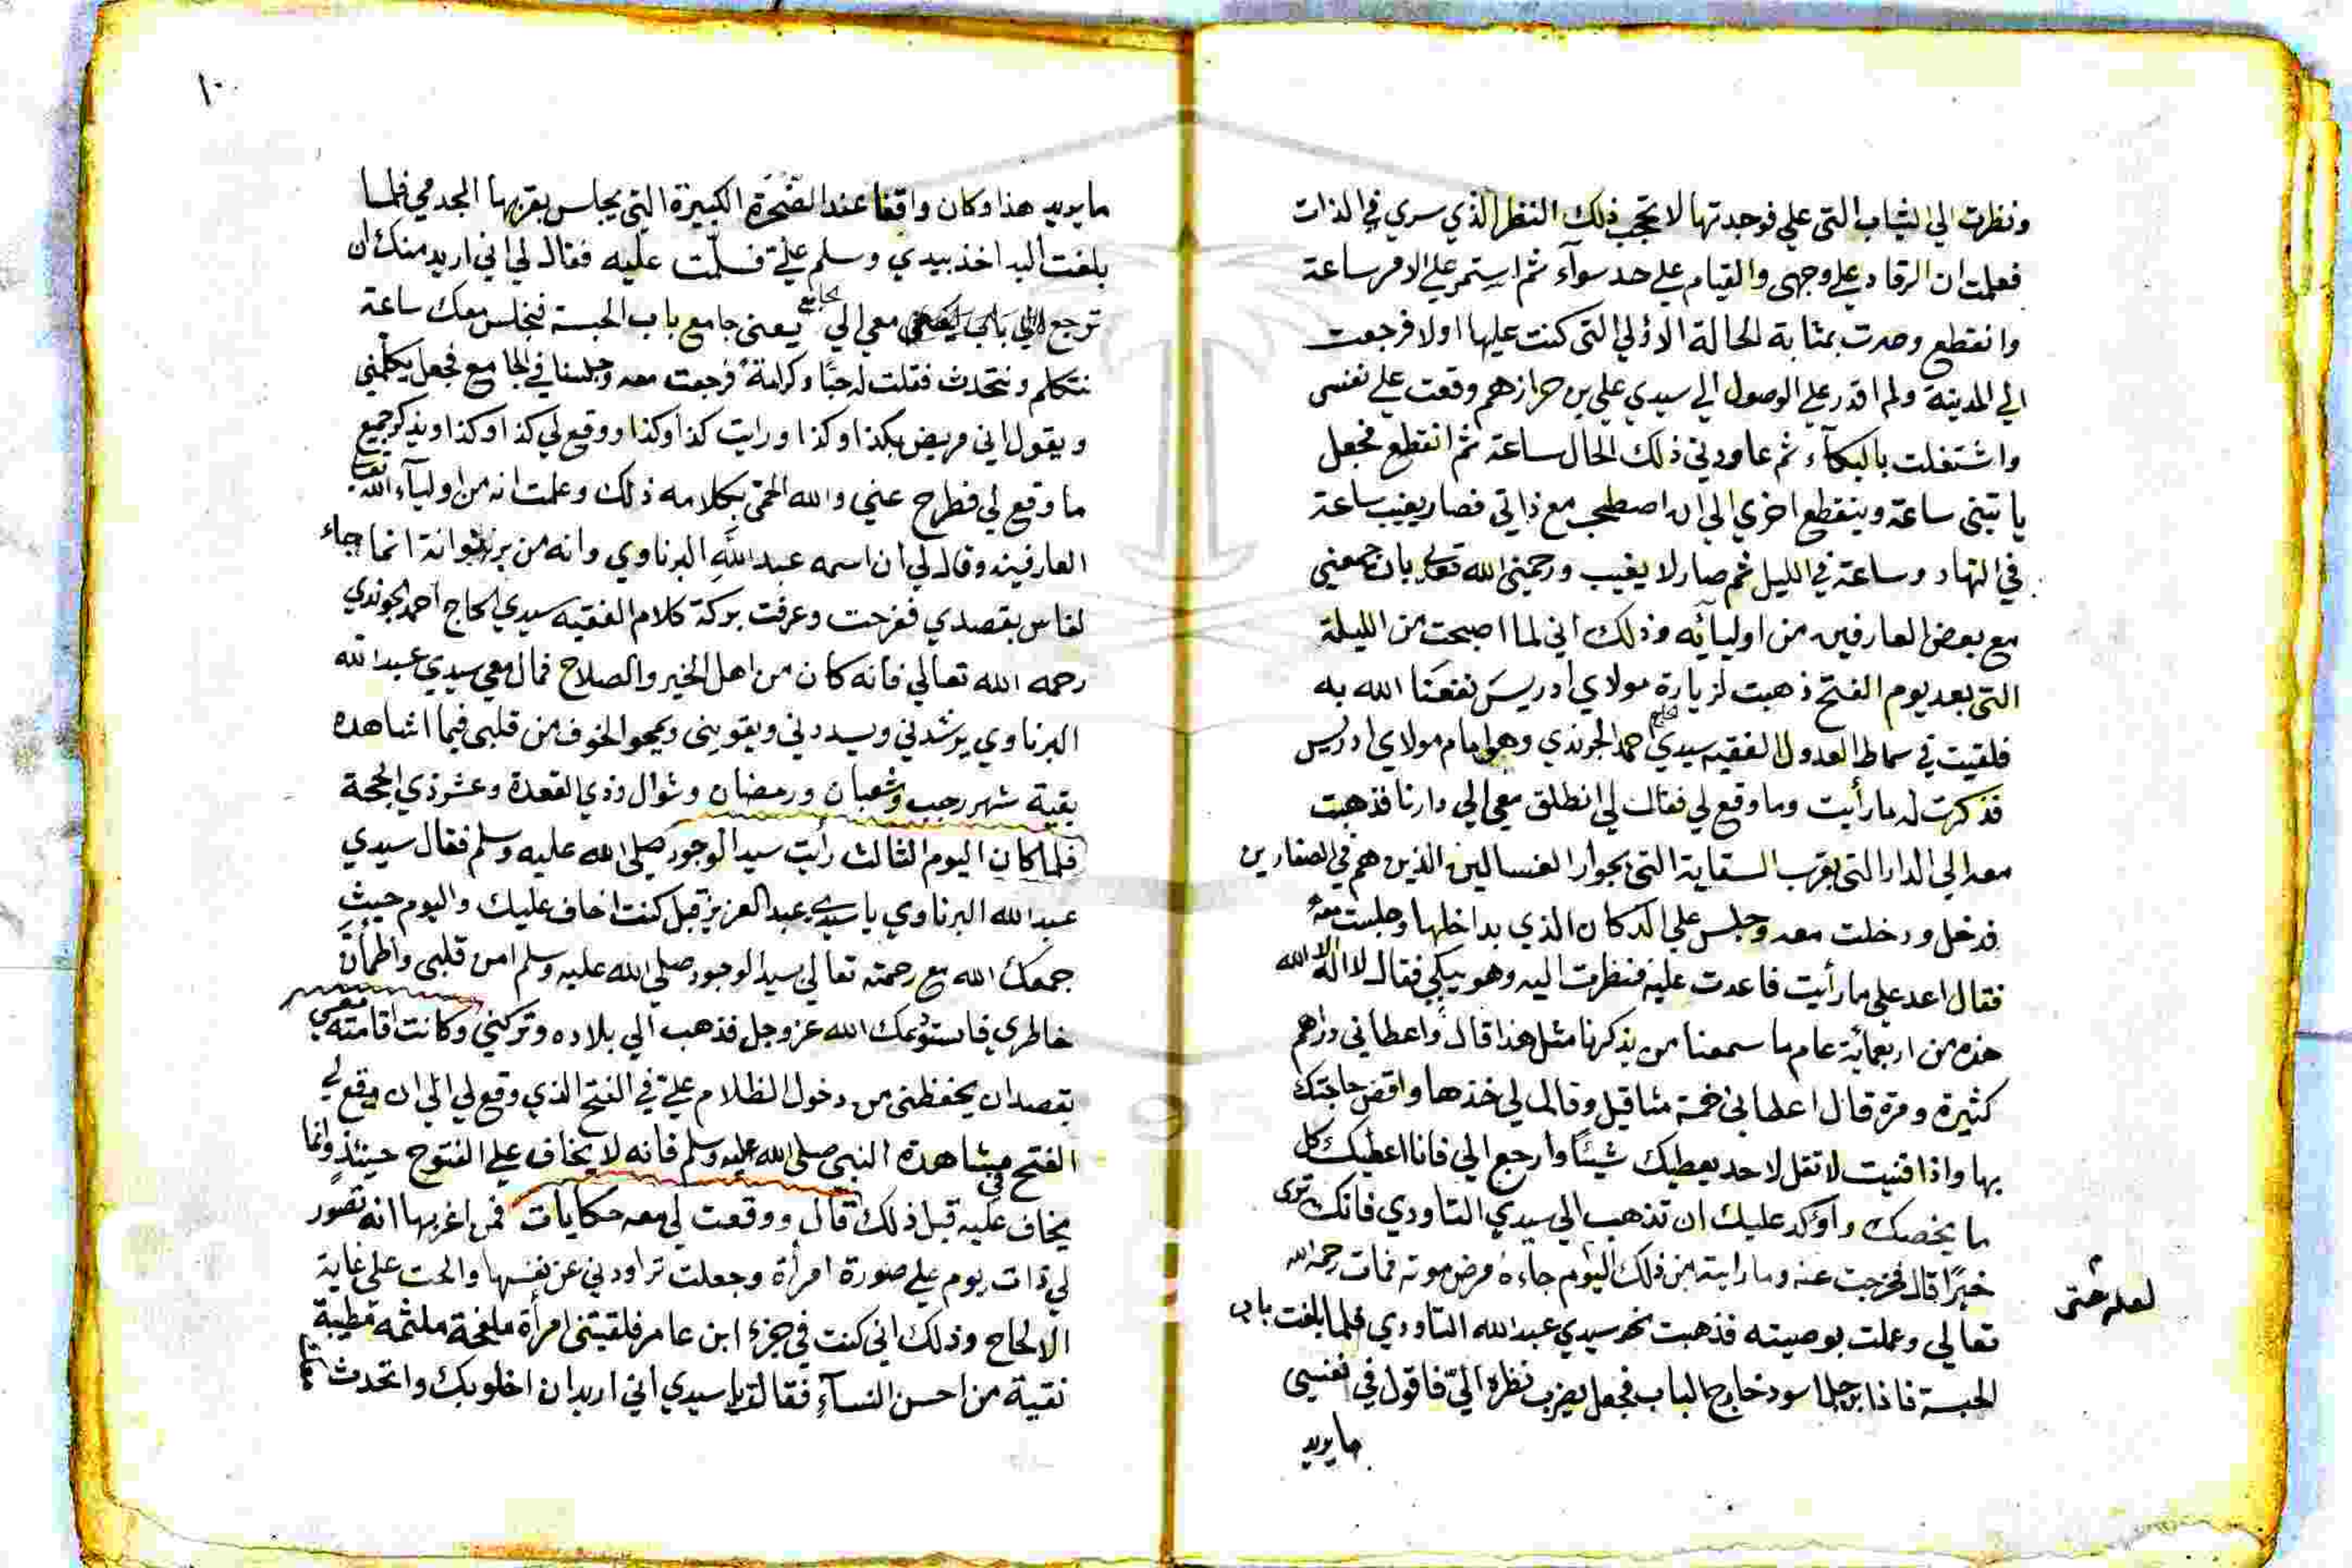 ونظرت الي الثياب التي علي فوجدتها لا تحجب ذلك النظر الذي سري في الذات
فعلمت ان الرقاد علي وجهي والقيام علي حد سوآء ثم استمر علي الامر ساعة
وانقطع وصرت بمثابة الحالة الاولي التي كنت عليها اولا فرجعت
الي المدينة ولم اقدر علي الوصول الي سيدي علي بن حرازهم وقعت علي نفسي
واشتغلت بالبكآء ثم عاودني ذلك الحال ساعة ثم انقطع فجعل
ياتيني ساعة وينقطع اخري الي ان اصطحب مع ذاتي فصار يغيب ساعة
في النهار وساعة في الليل ثم صار لا يغيب ورحمني الله تعالي بان جمعني
مع بعض العارفين من اوليائه وذلك اني لما اصبحت من الليلة
التي بعد يوم الفتح ذهبت لزيارة مولاي ادريس نفعنا الله به
فلقيت في سماط العدول الفقيه سيدي الحاج احمد الجرندي وهو امام مولاي ادريس
فذكرت له ما رأيت وما وقع لي فقال لي انطلق معي الي دارنا فذهبت
معه الي الدار التي بقرب السقاية التي بجوار الغسالين الذين هم في الصفارين
فدخل ودخلت معه وجلس علي الدكان الذي بداخلها وجلست معه
فقال اعد علي ما رأيت فاعدت عليه فنظرت اليه وهو يبكي فقال لا اله الا الله
هذه من اربعمائة عام ما سمعنا من يذكرنا مثل هذا قال واعطاني دراهم
كثيرة ومرة قال اعطاني خمسة مثاقيل وقال لي خذها واقض حاجتك
بها واذا فنيت لا تقل لاحد يعطيك شيئا وارجع الي فانا اعطيك كل
ما يخصك واؤكد عليك ان تذهب الي سيدي التاودي فانك تري
خيرا قال فخرجت عنه وما رايته من ذلك اليوم جاءه مرض موته فمات رحمه الله
لعله حتى
تعالي وعملت بوصيته فذهبت نحو سيدي عبد الله التاودي فلما بلغت باب
الحبسة فاذا برجل اسود خارج الباب فجعل يضرب نظره الي فاقول في نفسي
ما يريد
١٠
ما يريد هذا وكان واقفا عند الصخرة الكبيرة التي يجلس بقربها الجدمي فلما
بلغت اليه اخذ بيدي وسلم علي فسلمت عليه فقال لي اني اريد منك ان
ترجع معي الي الجامع يعني جامع باب الحبسة فنجلس معك ساعة
نتكلم ونتحدث فقلت له حبا وكرامة فرجعت معه وجلسنا في الجامع فجعل يكلمني
ويقول اني مريض بكذا وكذا ورايت كذا وكذا ووقع لي كذا وكذا ويذكر جميع
ما وقع لي فطرح عني والله الحمي بكلامه ذلك وعلمت انه من اوليآء الله تعالي
العارفين وقال لي ان اسمه عبد الله البرناوي وانه من برنو وانه انما جاء
لفاس بقصدي ففرحت وعرفت بركة كلام الفقيه سيدي الحاج احمد الجرندي
رحمه الله تعالي فانه كان من اهل الخير والصلاح فمال معي سيدي عبد الله
البرناوي يرشدني ويسددني ويقويني ويمحو الخوف من قلبي فيما اشاهده
بقية شهر رجب وشعبان ورمضان وشوال وذي القعدة وعشر ذي الحجة
فلما كان اليوم الثالث رأيت سيد الوجود صلي الله عليه وسلم فقال سيدي
عبد الله البرناوي يا سيدي عبد العزيز قبل كنت اخاف عليك واليوم حيث
جمعك الله مع رحمته تعالي سيد الوجود صلي الله عليه وسلم امن قلبي واطمأن
خاطري فاستودعك الله عز وجل فذهب الي بلاده وتركني وكانت اقامته معي
بقصد ان يحفظني من دخول الظلام علي في الفتح الذي وقع لي الي ان وقع لي
الفتح في مشاهدة النبي صلي الله عليه وسلم فانه لا يخاف علي الفتوح حينئذ وانما
يخاف عليه قبل ذلك قال ووقعت لي معه حكايات فمن اغربها انه تصور
لي ذات يوم علي صورة امرأة وجعلت تراودني عن نفسها والحت علي غاية
الالحاح وذلك اني كنت في جزء ابن عامر فلقيتني امرأة ملفحة ملثمة مطيبة
نقية من احسن النسآء فقالت يا سيدي اني اريد ان اخلو بك واتحدث